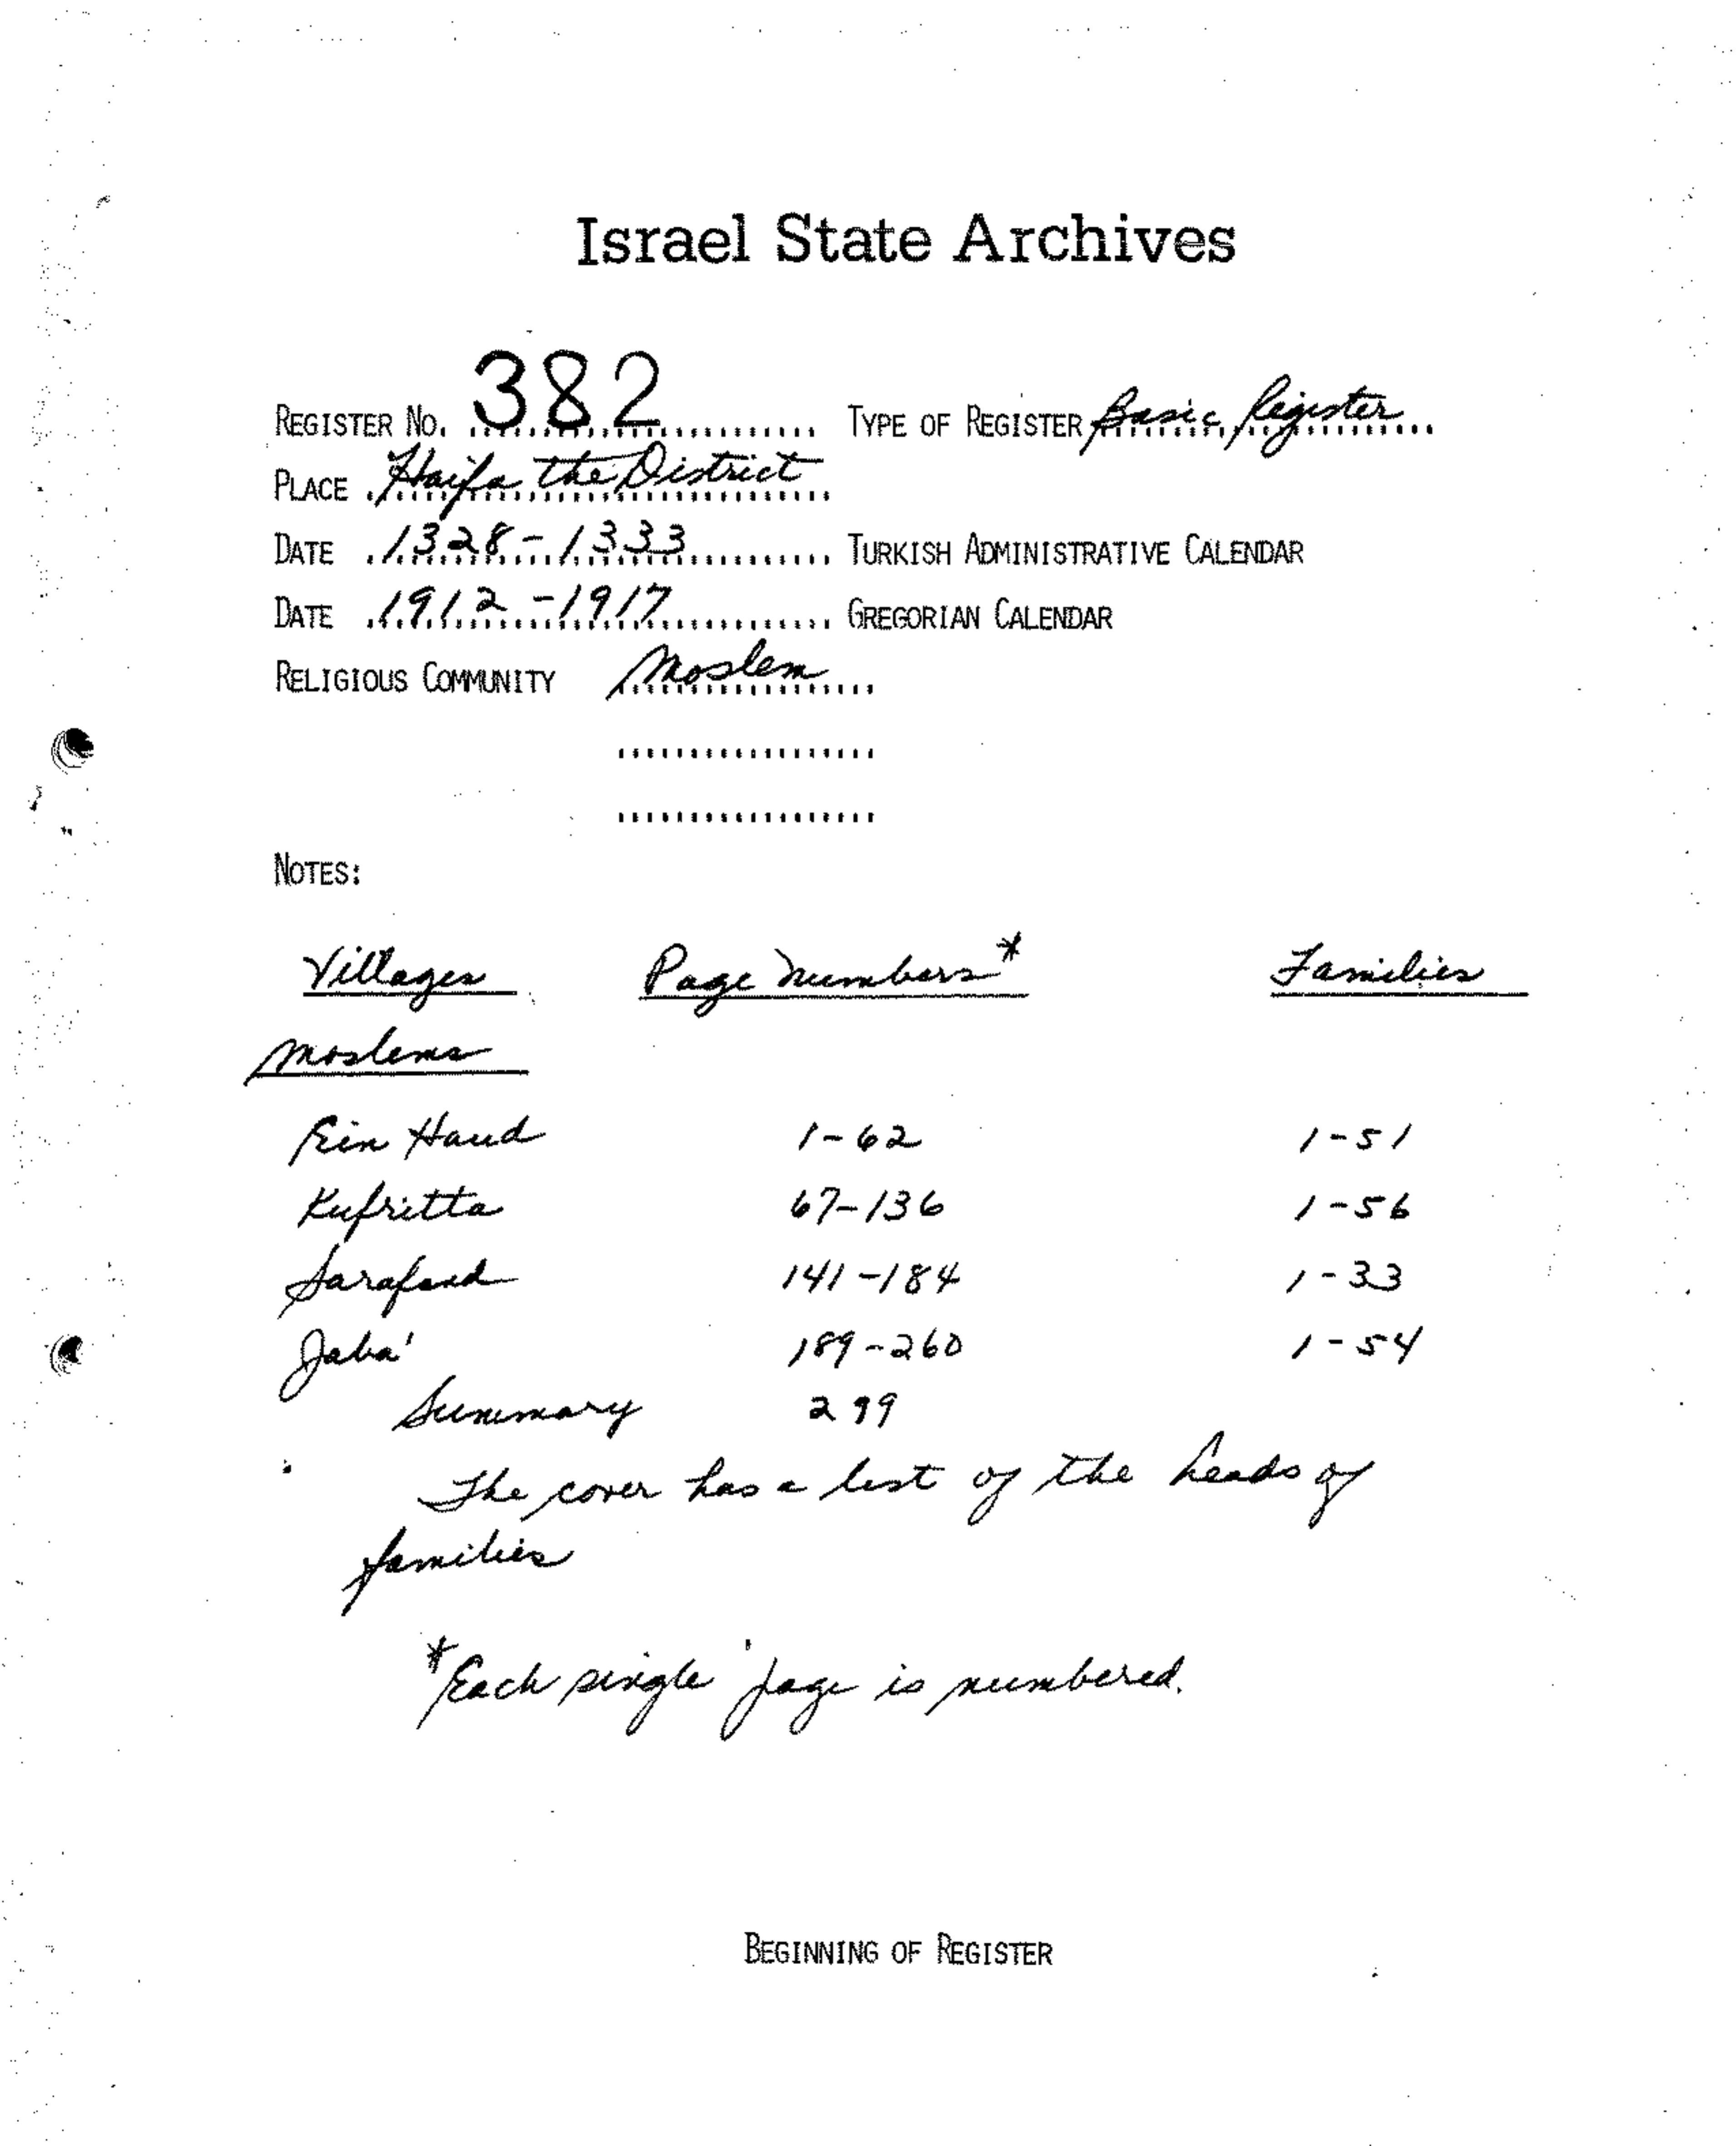 Israel State Archives
REGISTER NO. 382 TYPE OF REGISTER Basic Register
PLACE Haifa the District
DATE 1328-1333 TURKISH ADMINISTRATIVE CALENDAR
DATE 1912-1917 GREGORIAN CALENDAR
RELIGIOUS COMMUNITY Moslem
NOTES:
Villages Page Numbers* Families
Moslems
Ein Haud 1-62 1-51
Kufritta 67-136 1-56
Sarafand 141-184 1-33
Jaba' 189-260 1-54
Summary 299
The cover has a list of the heads of
families
*Each single page is numbered.
BEGINNING OF REGISTER